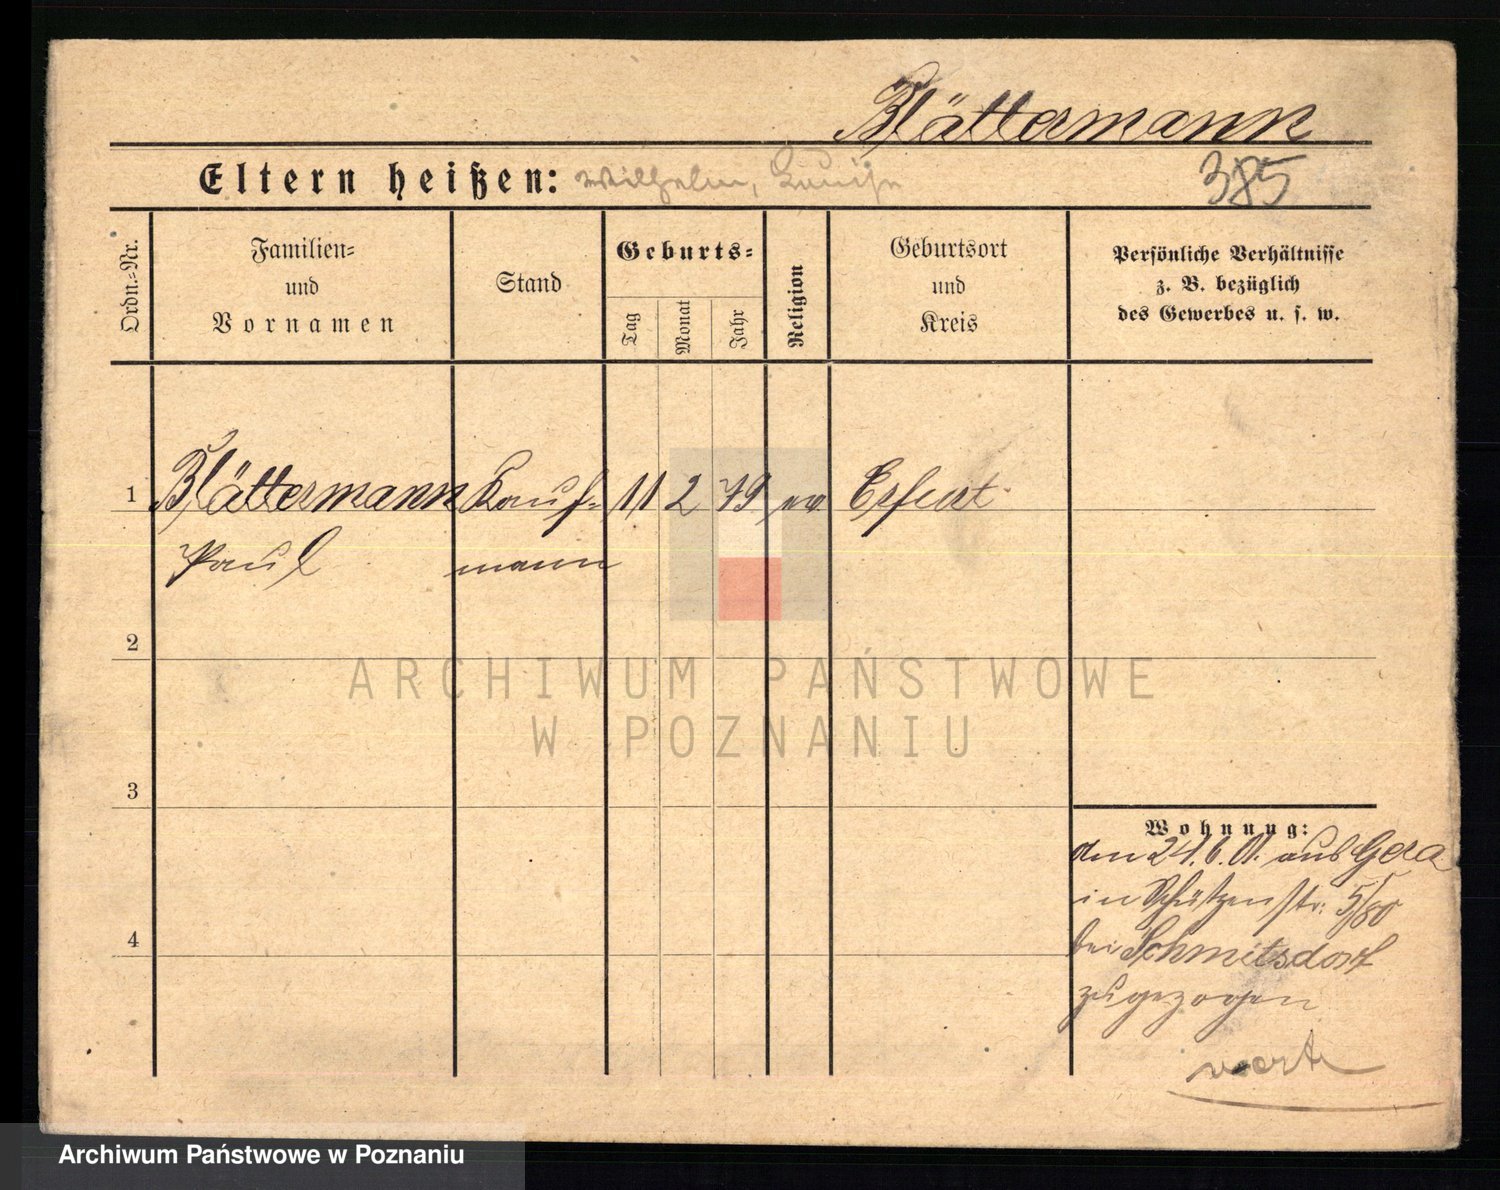 Blättermann
Eltern heißen: Wilhelm, Luise
385
Ordn.-Nr.
Familien-
und
Vornamen
Stand
Geburts-
Tag
Monat
Jahr
Religion
Geburtsort
und
Kreis
Persönliche Verhältnisse
z. B. bezüglich
des Gewerbes u. s. w.
1 Blättermann Kauf- 11 2 79 ev Erfurt
Paul mann
2
ARCHIWUM PAŃSTWOWE
W POZNANIU
3
Wohnung:
den 24.6.01. aus Gera
in Schützenstr: 5/80
4
bei Schmitsdorf
zugezogen
Archiwum Państwowe w Poznaniu